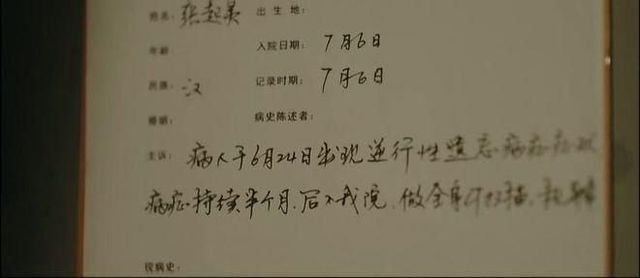 姓名：张起灵 出生地：
年龄 入院日期：7月6日
民族：汉 记录时期：7月6日
婚姻： 病史陈述者：
主诉：病人于6月24日出现逆行性遗忘病症症状
病症持续半个月.后入我院.做全身CT扫描.
现病史：